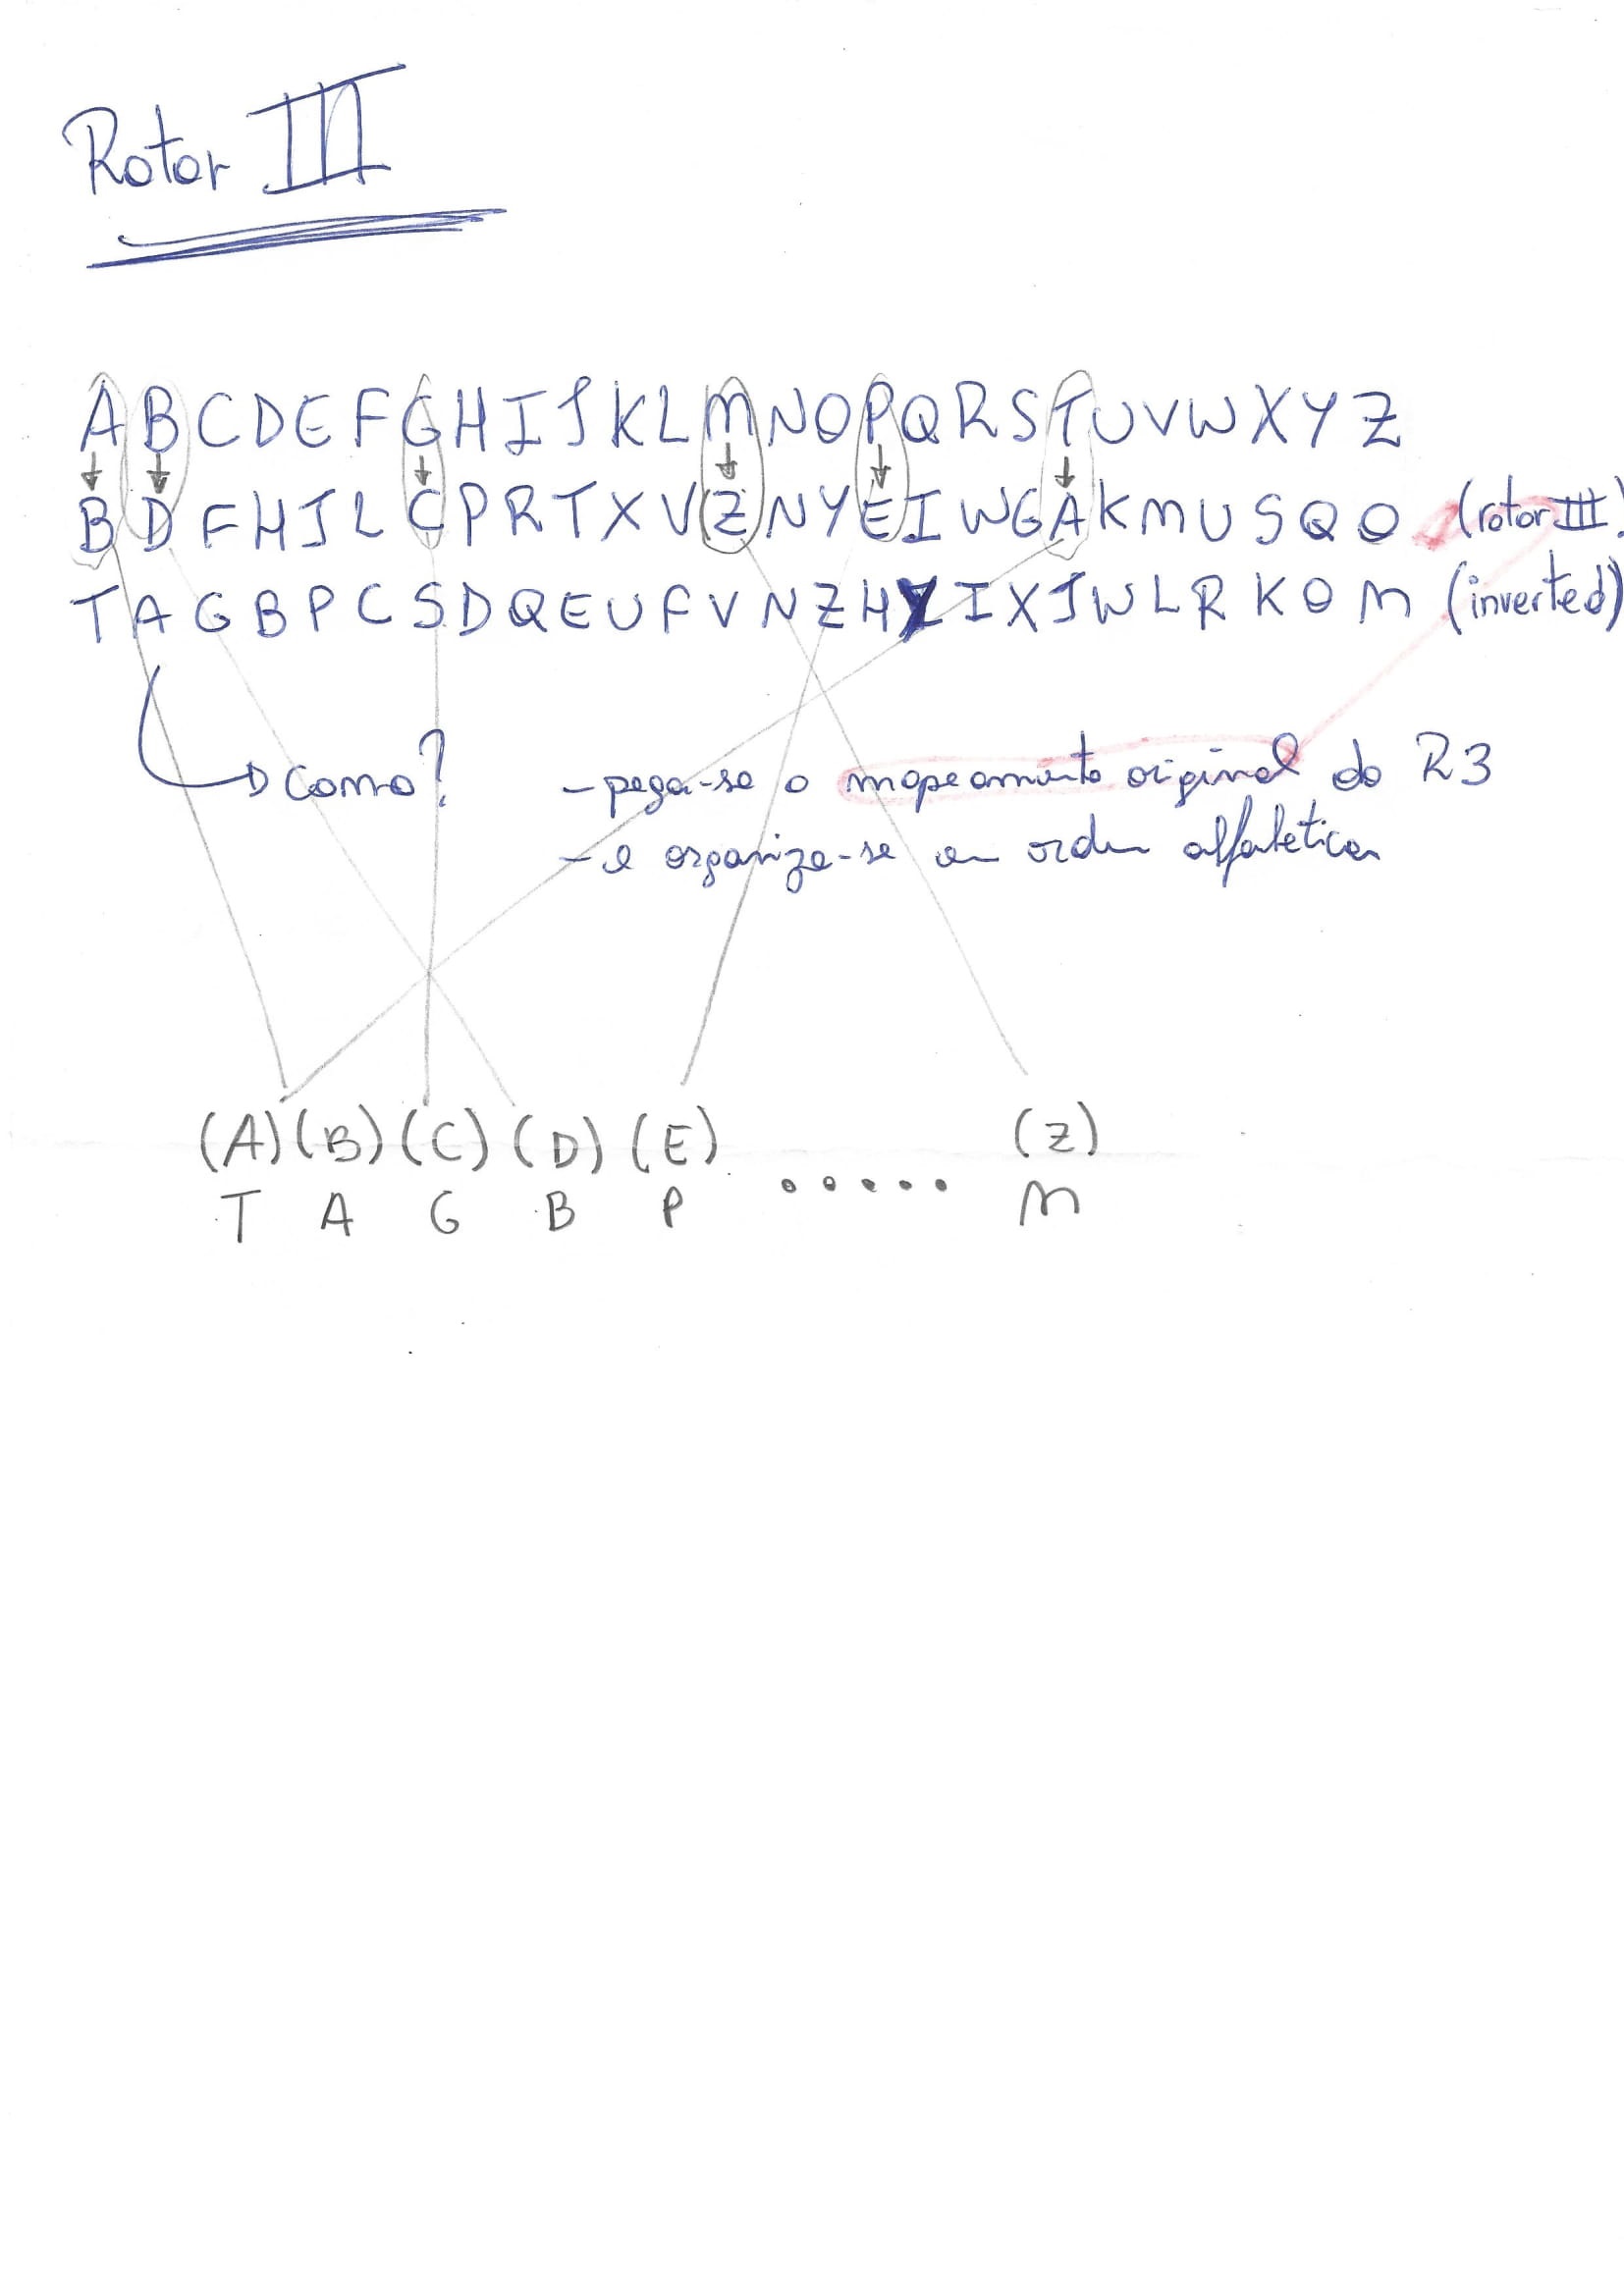 Rotor III
A B C D E F G H I J K L M N O P Q R S T U V W X Y Z
B D F H J L C P R T X V Z N Y E I W G A K M U S Q O (rotor III)
T A G B P C S D Q E U F V N Z H Y I X J W L R K O M (inverted)
Como? - pega-se o mapeamento original do R3
- e organiza-se em ordem alfabética
(A) (B) (C) (D) (E) (Z)
T A G B P ..... M